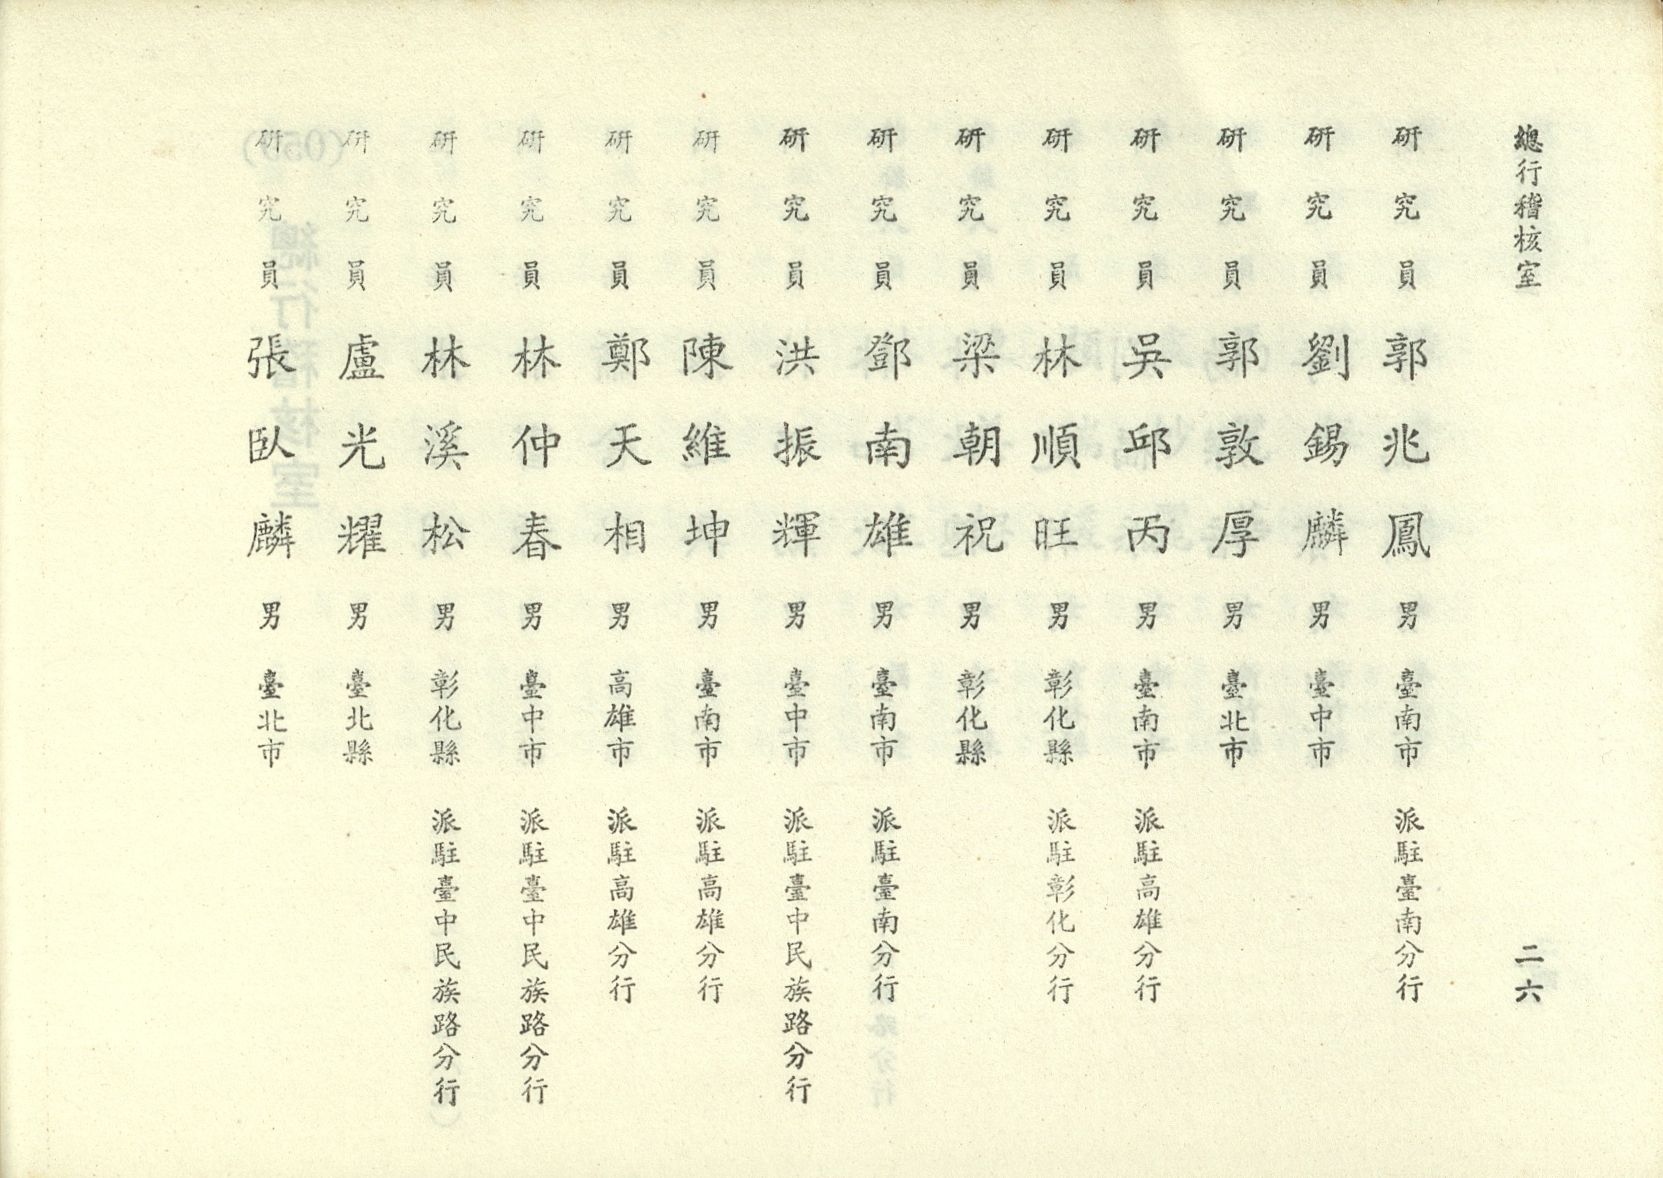 總行稽核室
二六
研究員 郭兆鳳 男 臺南市 派駐臺南分行
研究員 劉錫麟 男 臺中市
研究員 郭敦厚 男 臺北市
研究員 吳邱丙 男 臺南市 派駐高雄分行
研究員 林順旺 男 彰化縣 派駐彰化分行
研究員 梁朝祝 男 彰化縣
研究員 鄧南雄 男 臺南市 派駐臺南分行
研究員 洪振輝 男 臺中市 派駐臺中民族路分行
研究員 陳維坤 男 臺南市 派駐高雄分行
研究員 鄭天相 男 高雄市 派駐高雄分行
研究員 林仲春 男 臺中市 派駐臺中民族路分行
研究員 林溪松 男 彰化縣 派駐臺中民族路分行
研究員 盧光耀 男 臺北縣
研究員 張臥麟 男 臺北市